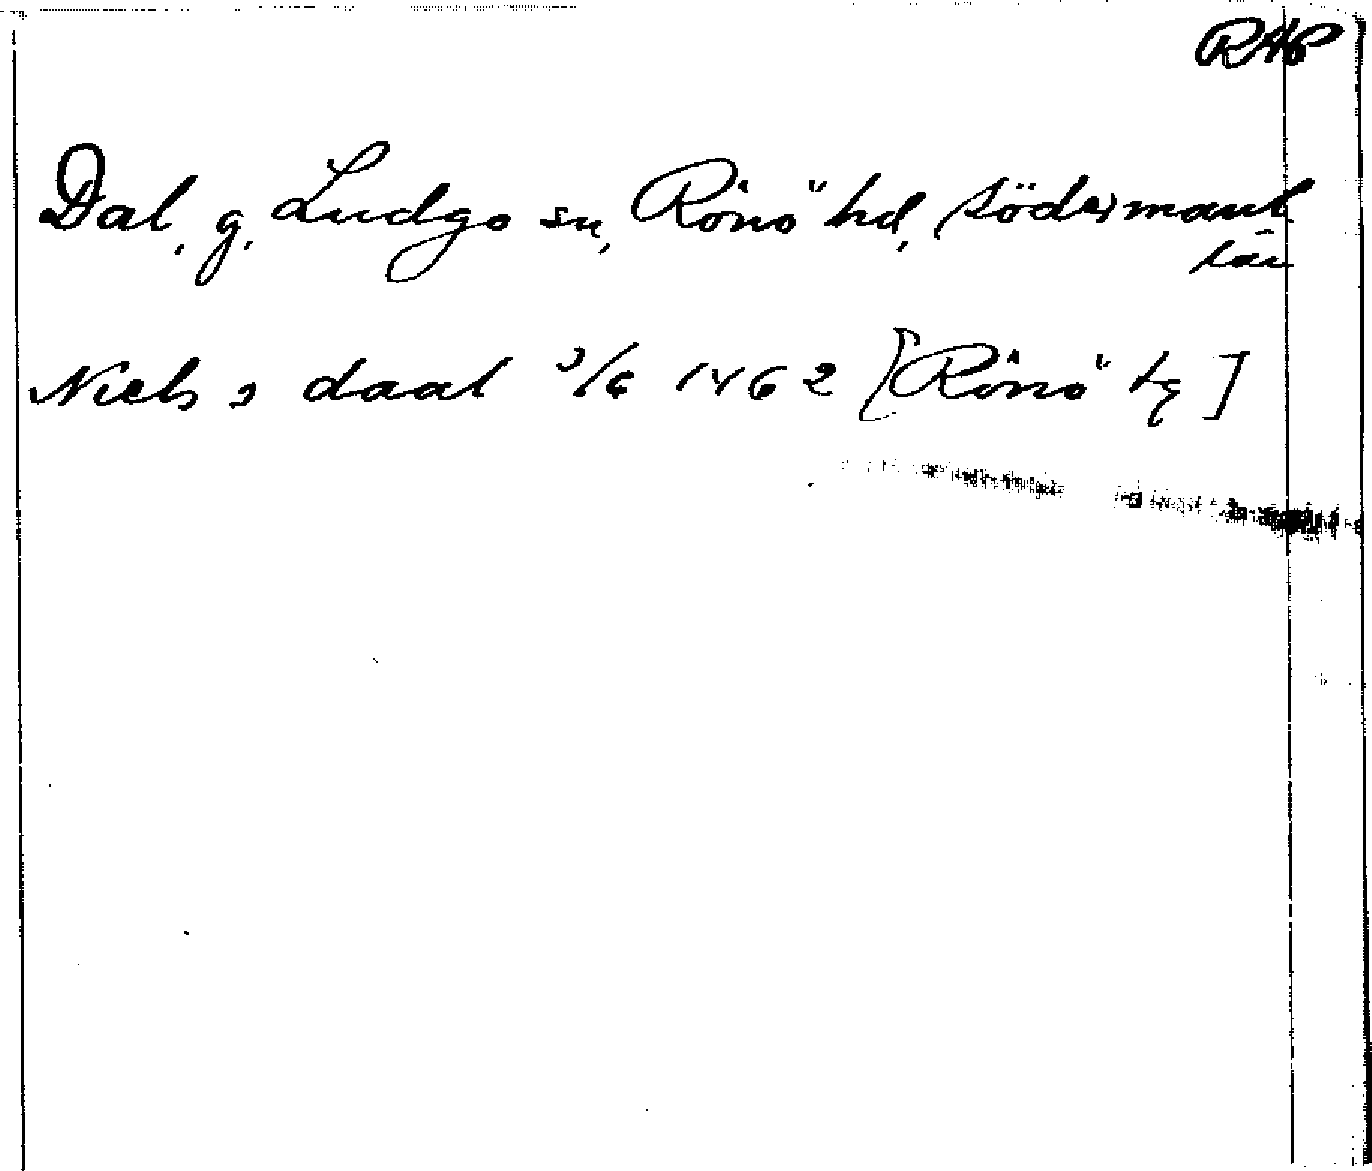 RAP
Dal, g, Ludgo sn, Rönö hd, Södermanl
län
Niels i daal 3/6 1462 [Rönö tg]